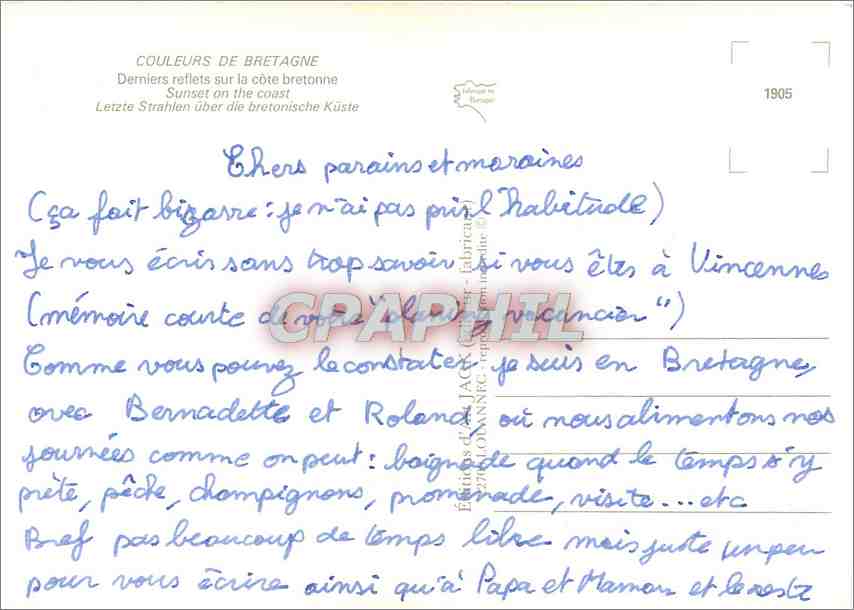 COULEURS DE BRETAGNE
Derniers reflets sur la côte bretonne
Sunset on the coast
Letzte Strahlen über die bretonische Küste
fabriqué en
Bretagne
1905
Chers parains et maraines
(ça fait bizarre : je n'ai pas pris l'habitude)
Je vous écris sans trop savoir si vous êtes à Vincennes
(mémoire courte de votre "planing vacancier")
Comme vous pouvez le constater je suis en Bretagne,
avec Bernadette et Roland, où nous alimentons nos
journées comme on peut : baignade quand le temps s'y
prète, pêche, champignons, promenade, visite... etc
Bref pas beaucoup de temps libre mais juste un peu
pour vous écrire ainsi qu'à Papa et Maman et le reste
Editions d'Art JACK (Editeur - fabricant)
LOUANNEC - reproduction interdite ©
CPAPHIL